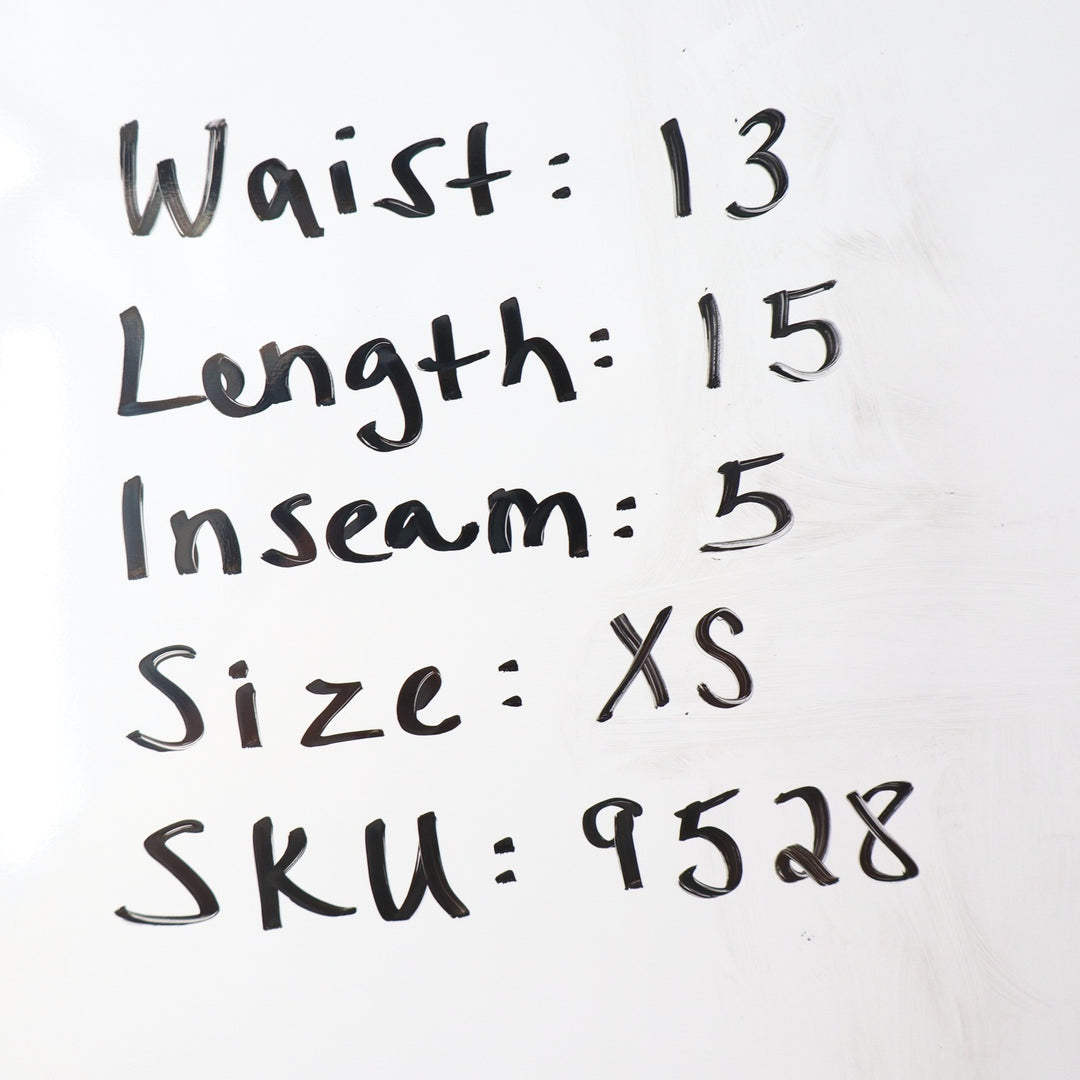 Waist: 13
Length: 15
Inseam: 5
Size: XS
SKU: 9528